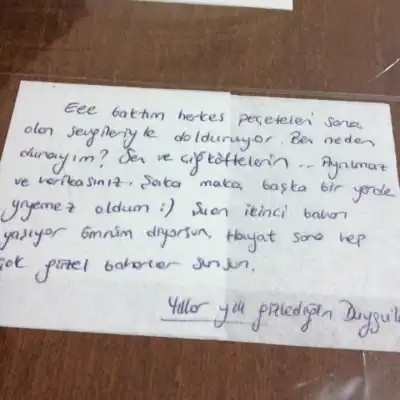 Eee baktım herkes peçeteleri sana
olan sevgileriyle dolduruyor. Ben neden
durayım? Sen ve çiğköftelerin... Ayrılmaz
ve harikasınız. Şaka maka, başka bir yerde
yiyemez oldum :) Şuan ikinci baharı
yaşıyor ömrüm diyorsun, Hayat sana hep
çok güzel baharlar sunsun.
Yıllar yılı gizlediğin